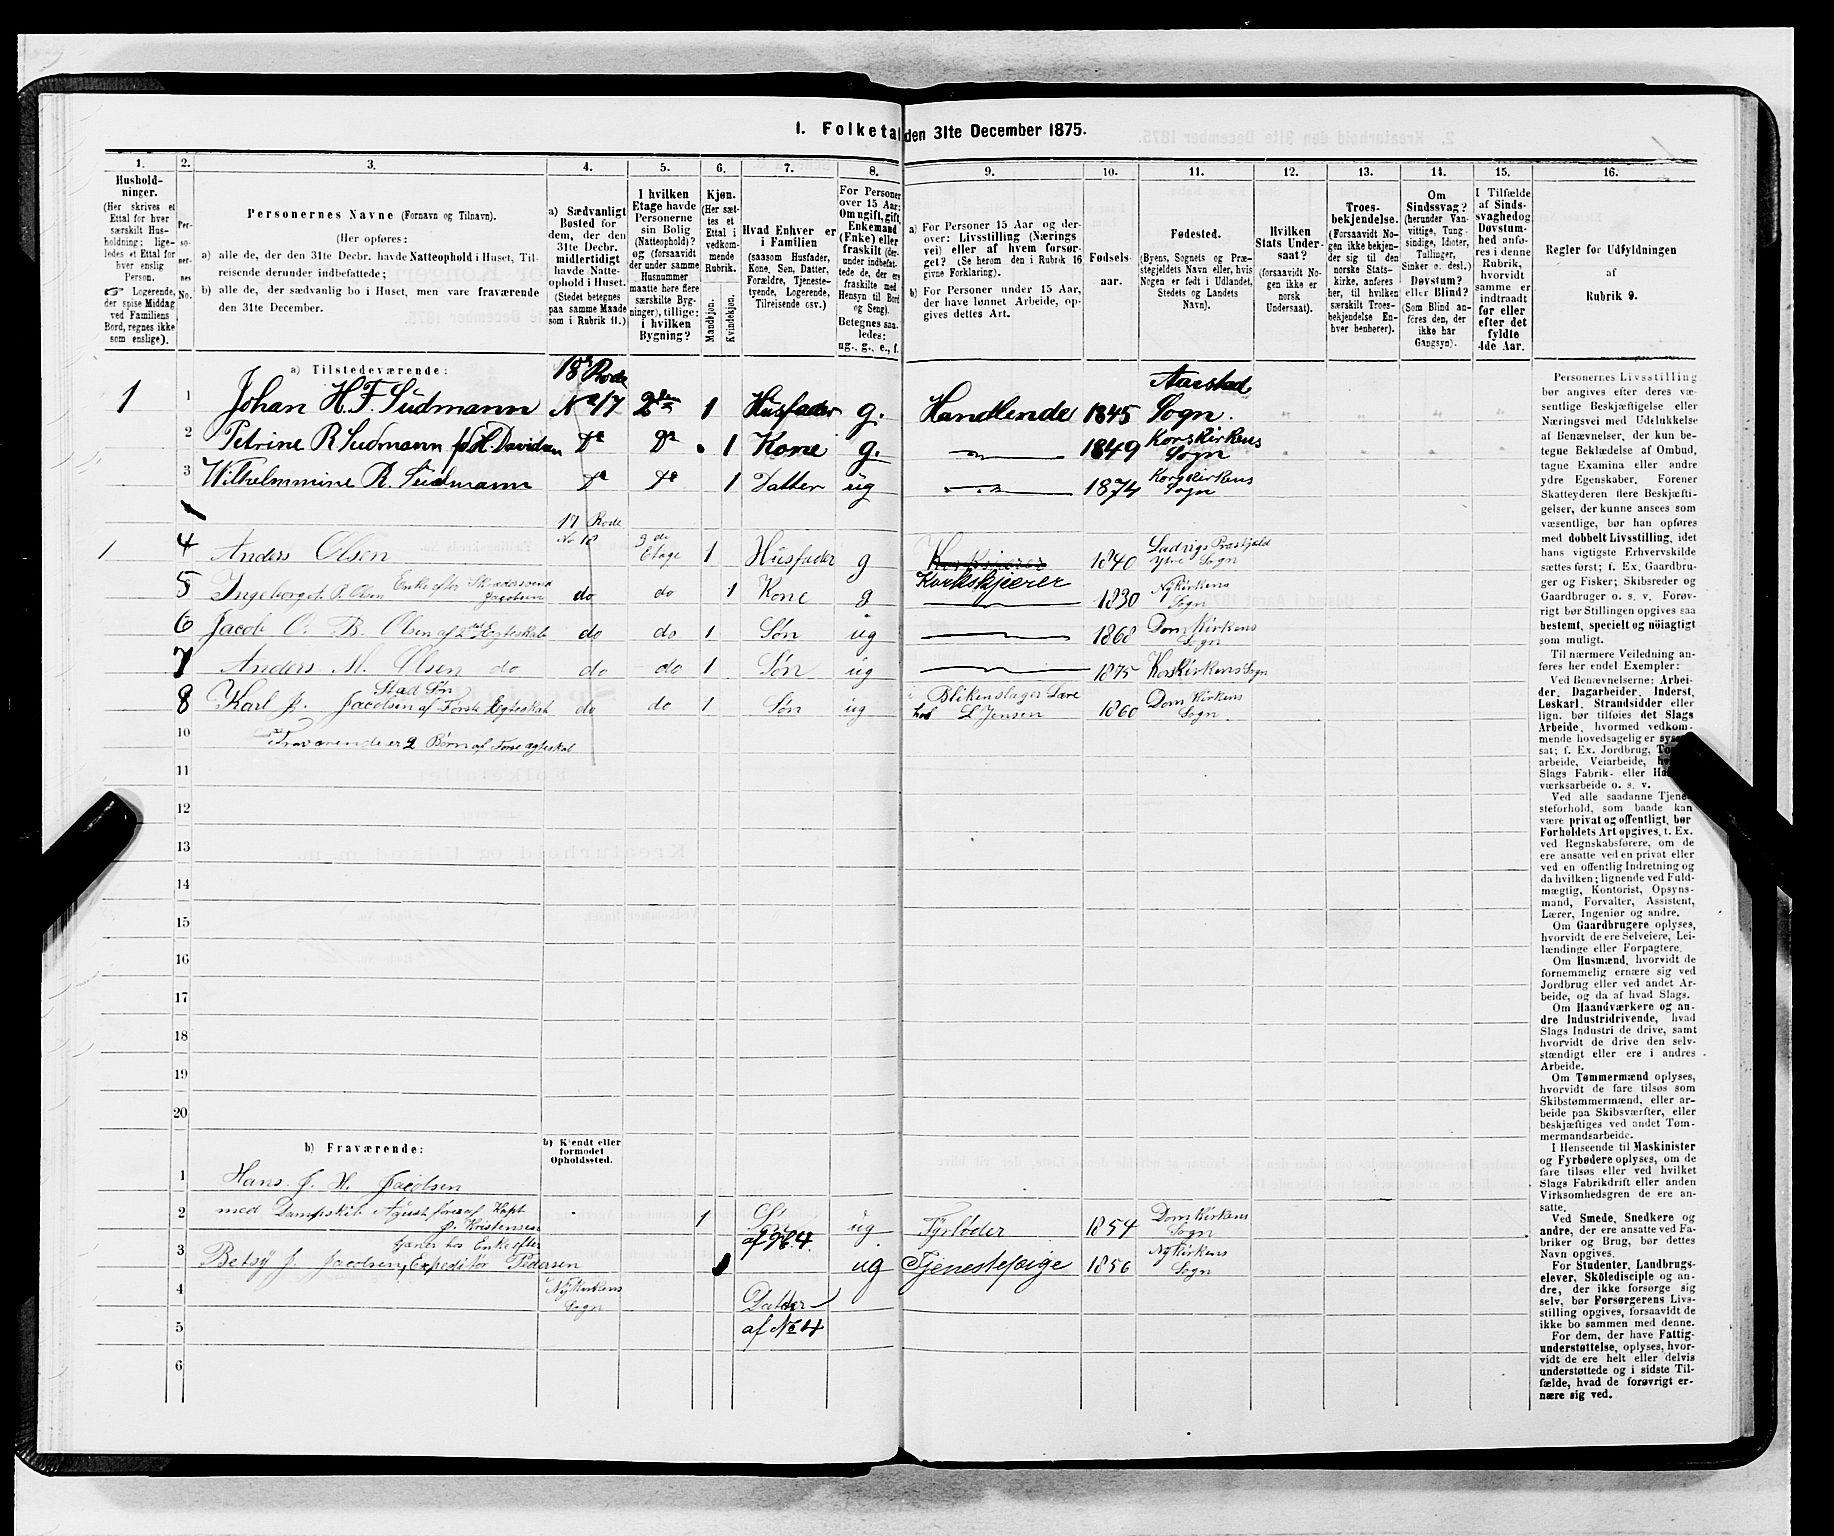 1. Folketal den 31te December 1875.
1.
2.
3.
4.
5.
6.
7.
8.
9.
10.
11.
12.
13.
14.
15.
16.
Hushold-
ninger.
(Her skrives et
Ettal for hver
særskilt Hus-
holdning; lige-
ledes et Ettal for
hver enslig
Person.
☞ Logerende,
der spise Middag
ved Familiens
Bord, regnes ikke
som enslige).
Per-
so-
ner-
nes
No.
Personernes Navne (Fornavn og Tilnavn).
(Her opføres:
a) alle de, der den 31te Decbr. havde Natteophold i Huset, Til-
reisende derunder indbefattede;
b) alle de, der sædvanlig bo i Huset, men vare fraværende
den 31te December.
a) Sædvanligt
Bosted for
dem, der den
31te Decbr.
midlertidigt
havde Natte-
ophold i Huset.
(Stedet betegnes
paa samme Maade
som i Rubrik 11.)
I hvilken
Etage havde
Personerne
sin Bolig
(Natteophold)?
og (forsaavidt
der under samme
Husnummer
maatte høre flere
særskilte Byg-
ninger), tillige:
i hvilken
Bygning?
Kjøn.
(Her sæt-
tes et
Ettal i
vedkom-
mende
Rubrik.
Mandkjøn.
Kvindekjøn.
Hvad Enhver er
i Familien
(saasom Husfader,
Kone, Søn, Datter,
Forældre, Tjeneste-
tyende, Logerende,
Tilreisende osv.)
For Personer
over 15 Aar:
Om ugift, gift,
Enkemand
(Enke) eller
fraskilt (der-
under indbefat-
tede de, der ere
fraskilte med
Hensyn til Bord
og Seng).
Betegnes saa-
ledes:
ug., g., e., f.
a) For Personer 15 Aar og der-
over: Livsstilling (Nærings
vei) eller af hvem forsør-
get? (Se herom den i Rubrik 16
givne Forklaring).
b) For Personer under 15 Aar,
der have lønnet Arbeide, op-
gives dettes Art.
Fødsels-
aar.
Fødested.
(Byens, Sognets og Præ-
stegjeldets Navn eller, hvis
Nogen er født i Udlandet,
Stedets og Landets
Navn).
Hvilken
Stats Under-
saat?
(forsaavidt No-
gen ikke er
norsk
Undersaat).
Troes-
bekjendelse.
(Forsaavidt No-
gen ikke bekjen-
der sig til den
norske Stats-
kirke, anføres
her, til hvilken
særskilt Troes-
bekjendelse En-
hver henhører).
Om
Sindssvag?
(herunder Van-
vittige, Tung-
sindige, Idioter,
Tullinger,
Sinker o. desl.)
Døvstum?
eller Blind?
(Som Blind an-
føres den, der
ikke har
Gangsyn).
I Tilfælde
af Sinds-
svaghed og
Døvstum-
hed anfø-
res i denne
Rubrik,
hvorvidt
samme er
indtraadt
før eller
efter det
fyldte
4de Aar.
Regler for Udfyldningen
af
Rubrik 9.
a) Tilstedeværende:
18de Rode
1 1 Johan H. F. Südmann No 17 2den 1 Husfader g. Handlende 1845 Aarstad Sogn.
2 Petrine R Südmann fød Davidsen do do 1 Kone g. 1849 Korskirkens Sogn
3 Wilhelmmine R. Südmann do do 1 Datter ug 1874 Korskirkens Sogn
17 Rode
1 4 Anders Olsen No 18 2 de Etage 1 Husfader g Korkskjerer 1840 Ladvigs Præstjeld Ytre Sogn
5 Ingeborget R. Olsen Enke efter Jacobsen do do 1 Kone g Korkskjerer 1830 Nykirkens Sogn
6 Jacob O. B. Olsen af 2det Egteskab do do 1 Søn ug 1868 DomKirkens Sogn
7 Anders M. Olsen do do do 1 Søn ug 1875 KorsKirkens Sogn
8 Karl J. Jacobsen Sted Søn af Første Egteskab do do 1 Søn ug i Blikenslager Lære hos L Jensen 1860 Dom Kirkens Sogn
10 Fraværende er 2 Børn af Første egteskab
11
12
13
14
15
16
17
18
19
20
b) Fraværende:
b) Kjendt eller
formodet
Opholdssted.
1 Hans J. H. Jacobsen
2 med Dampskib August føres af Kapt Kristensen 1 Søn af No 4. ug Fyrbøder 1854 DomKirkens Sogn
3 Betsy J. Jacobsen tjaner hos Enke efter Expeditør Pedersen 1 ug Tjenestepige 1856 NyKirkens Sogn
4 NyKirkens Sogn Datter
5 af No 4
6
Personernes Livsstilling
bør angives efter deres væ-
sentlige Beskjæftigelse eller
Næringsvei med Udelukkelse
af Benævnelser, der kun be-
tegne Beklædelse af Ombud,
tagne Examina eller andre
ydre Egenskaber. Forener
Skatteyderen flere Beskjæfti-
gelser, der kunne ansees som
væsentlige, bør han opføres
med dobbelt Livsstilling, idet
hans vigtigste Erhvervskilde
sættes først; f. Ex. Gaardbru-
ger og Fisker; Skibsreder og
Gaardbruger o. s. v. Forøv-
rigt bør Stillingen opgives saa
bestemt, specielt og nöiagtigt
som muligt.
Til nærmere Veiledning an-
føres her endel Exempler:
Ved Benævnelserne: Arbei-
der, Dagarbeider, Inderst,
Løskarl, Strandsidder eller
lign. bør tilføies det Slags
Arbeide, hvormed vedkom-
mende hovedsagelig er syssel-
sat; f. Ex. Jordbrug,
arbeide, Veiarbeide,
Slags Fabrik- eller
værksarbeide o. s. v.
Ved alle saadanne Tjene-
steforhold, som baade kan
være privat og offentligt, bør
Forholdets Art opgives, t. Ex.
ved Regnskabsførere, om de
ere ansatte ved en privat eller
ved en offentlig Indretning og
da hvilken; lignende ved Fuld-
mægtig, Kontorist, Opsyns-
mand, Forvalter, Assistent,
Lærer, Ingeniør og andre.
Om Gaardbrugere oplyses,
hvorvidt de ere Selveiere, Lei-
lændinge eller Forpagtere.
Om Husmænd, hvorvidt de
fornemmelig ernære sig ved
Jordbrug eller ved andet Ar-
beide, og da af hvad Slags.
Om Haandværkere og an-
dre Industridrivende, hvad
Slags Industri de drive, samt
hvorvidt de drive den selv-
stændigt eller ere i andres
Arbeide.
Om Tømmermænd oplyses,
hvorvidt de fare tilsøs som
Skibstømmermænd, eller ar-
beide paa Skibsværfter, eller
beskjæftiges ved andet Tøm-
mermandsarbeide.
I Henseende til Maskinister
og Fyrbødere oplyses, om de
fare tilsøs eller ved hvilket
Slags Fabrikdrift eller anden
Virksomhedsgren de ere an-
satte.
Ved Smede, Snedkere og
andre, der ere ansatte ved Fa-
briker og Brug, bør dettes
Navn opgives.
For Studenter, Landbrugs-
elever, Skoledisciple og an-
dre, der ikke forsørge sig
selv, bør Forsørgerens Livs-
stilling opgives, forsaavidt de
ikke bo sammen med denne.
For dem, der have Fattig-
understøttelse, oplyses, hvor-
vidt de ere helt eller delvis
understøttede og i sidste Til-
fælde, hvad de forøvrigt er-
nære sig ved.